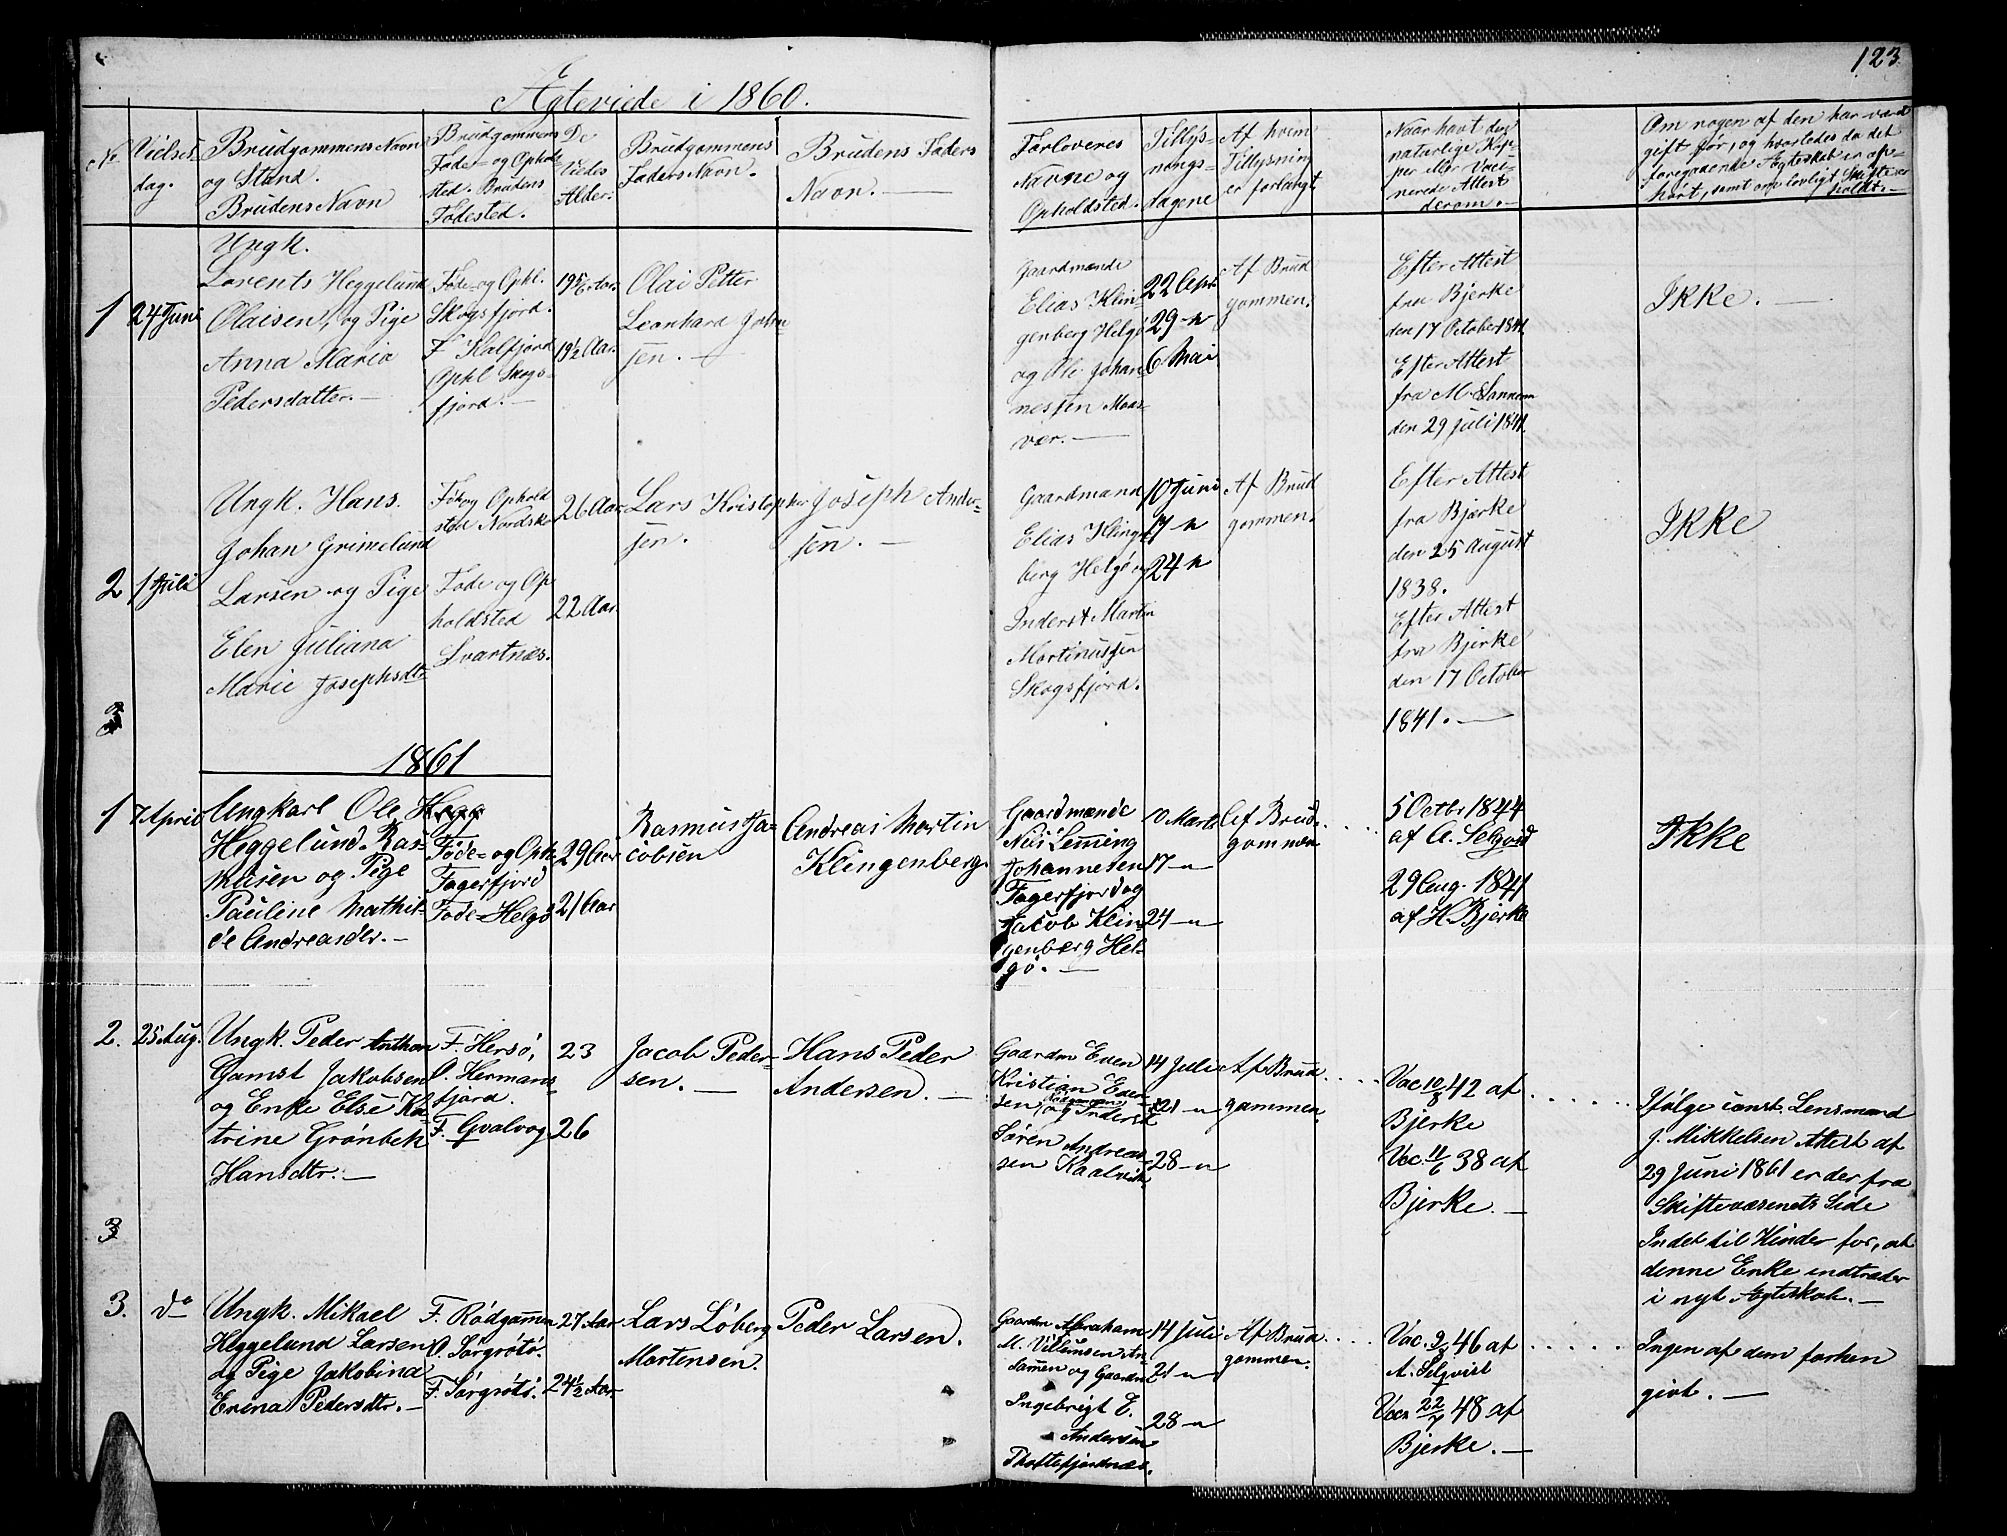 123
Ægteviede i 1860.
No
Vielses-
dag.
Brudgommens Navn
og Stand.
Brudens Navn
Brudgommens
Føde- og Opholds
sted. Brudens
Fødested.
De
Viedes
Alder.
Brudgommens
Faders Navn.
Brudens Faders
Navn.
Forloveres
Navne og
Opholdsted.
Tillys-
nings-
dagene
Af hvem
Tillysning
er forlangt
Naar havt de
naturlige Kop-
per eller Vacci-
nerede Attest
derom.
Om nogen af dem har været
gift før, og hvorledes da det
foregaaende Ægteskab er op-
hørt, samt om lovligt Skifte er
holdt.
1
24 Juni
Ungk.
Lorents Heggelund
Olaisen, og Pige
Anna Maria
Pedersdatter.
Føde- og Ophl.
Skogsfjord.
F Kalfjord
Ophl Skogs-
fjord.
19 5/6 Aar.
19 1/2 Aar.
Olai Petter
Leonhard John
sen.
Gaardmænde
Elias Klin-
genberg Helgø
og Ole Johan-
nessen Maas-
vær.
22 Apr.
29 -"
6 Mai
Af Brud
gommen.
Efter Attest
fra Bjerke
den 17 October 1841
Efter Attest
fra M. Sannem
den 29 juli 1841.
Ikke.
2
1 Juli
Ungk. Hans
Johan Grimelund
Larsen og Pige
Elen Juliana
Marie Josephsdtr
Føde og Ophold
sted Nordsk
Føde og Op
holdsted
Svartnæs.
26 Aar
22 Aar.
Lars Kristopher
sen.
Joseph Ander-
sen.
Gaardmann
Elias Kling
berg Helgø og
Inderst Martin
Martinussen
Skogsfjord.
10 Juni
17 -"
24 -"
Af Brud
gommen.
Efter Attest
fra Bjærke
den 25 August
1838.
Efter Attest
fra Bjerke
den 17 October
1841.
Ikke
3
1861
1
7 April
Ungkarl Ole Hegg
Heggelund Ras-
musen og Pige
Pauline Mathil-
de Andreasdr.
Føde- og Oph.
Fagerfjord
Føde- Helgø
29 Aar
21 Aar
Rasmus Ja-
cobsen
Andreas Martin
Klingenberg.
Gaardmænde
Nils Leming
Johannesen
Fagerfjord og
Jacob Klin-
genberg Hel-
gø.
0 Marts
17 -"
24 -"
Af Brud-
gommen
5 Octbr 1844
af A. Selqvist
29 Aug. 1841
af H. Bjerke
Ikke
2.
25 Aug.
Ungk. Peder Anthon
Gamst Jakobsen
og Enke Else Ka-
trine Grønbek
Hansdtr.
F. Hersø,
O. Hermans-
fjord.
F. Gvalvog
23
26
Jacob Peder-
sen.
Hans Peder
Andersen.
Gaardm Even
Kristian Even-
sen, Rødgammen
og Inderst
Søren Andreas-
sen Kaalvik.
14 Juli
21 -"
28 -"
Af Brud
gommen.
Vac. 10/8 42 af
Bjerke
Vac. 11/6 38 af
Bjerke.
Ifølge const. Lensmand
J. Mikkelsen Attest af
29 Juni 1861 er der fra
Skiftevæsenets Side
Intet til Hinder for, at
denne Enke indtræder
i nyt Ægteskab.
3
3.
do
Ungk. Mikael
Heggelund Larsen
og Pige Jakobina
Erena Pedersdtr.
F. Rødgammen
O. Sørgrøtø.
F. Sørgrøtø.
27 Aar
24 1/2 Aar
Lars Løberg
Mortensen.
Peder Larsen.
Gaardm Abraham
M. Villumsen
og Gaardm
Ingebrigt E.
Andersen
Thoftefjordnæs.
14 Juli
21 -"
28 -"
Af Brud
gommen.
Vac. 9/8 46 af
A. Selqvist
Vac. 22/7 48 af
Bjerke.
Ingen af dem forhen
givt.